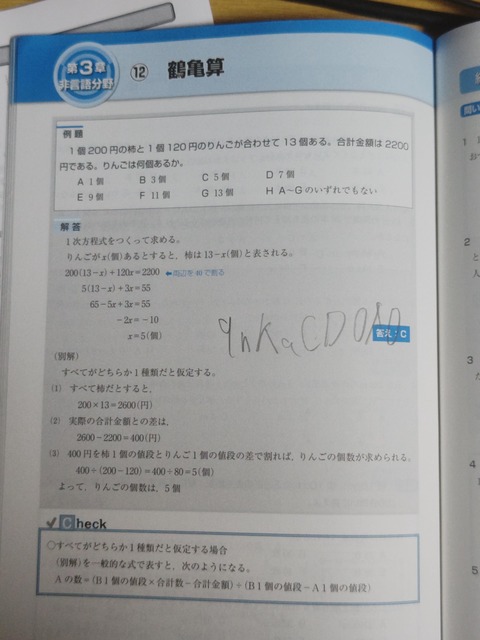 第3章
非言語分野
⑫ 鶴亀算
例題
1個200円の柿と1個120円のりんごが合わせて13個ある。合計金額は2200
円である。りんごは何個あるか。
A 1個 B 3個 C 5個 D 7個
E 9個 F 11個 G 13個 H A~Gのいずれでもない
解答
1次方程式をつくって求める。
りんごがx(個)あるとすると、柿は13-x(個)と表される。
200(13-x)+120x=2200 ←両辺を40で割る
5(13-x)+3x=55
65-5x+3x=55
-2x=-10
x=5(個)
答え:C
(別解)
すべてがどちらか1種類だと仮定する。
(1) すべて柿だとすると、
200×13=2600(円)
(2) 実際の合計金額との差は、
2600-2200=400(円)
(3) 400円を柿1個の値段とりんご1個の値段の差で割れば、りんごの個数が求められる。
400÷(200-120)=400÷80=5(個)
よって、りんごの個数は、5個
Check
○すべてがどちらか1種類だと仮定する場合
(別解)を一般的な式で表すと、次のようになる。
Aの数=(B1個の値段×合計数-合計金額)÷(B1個の値段-A1個の値段)
問い
1
2
3
4
5